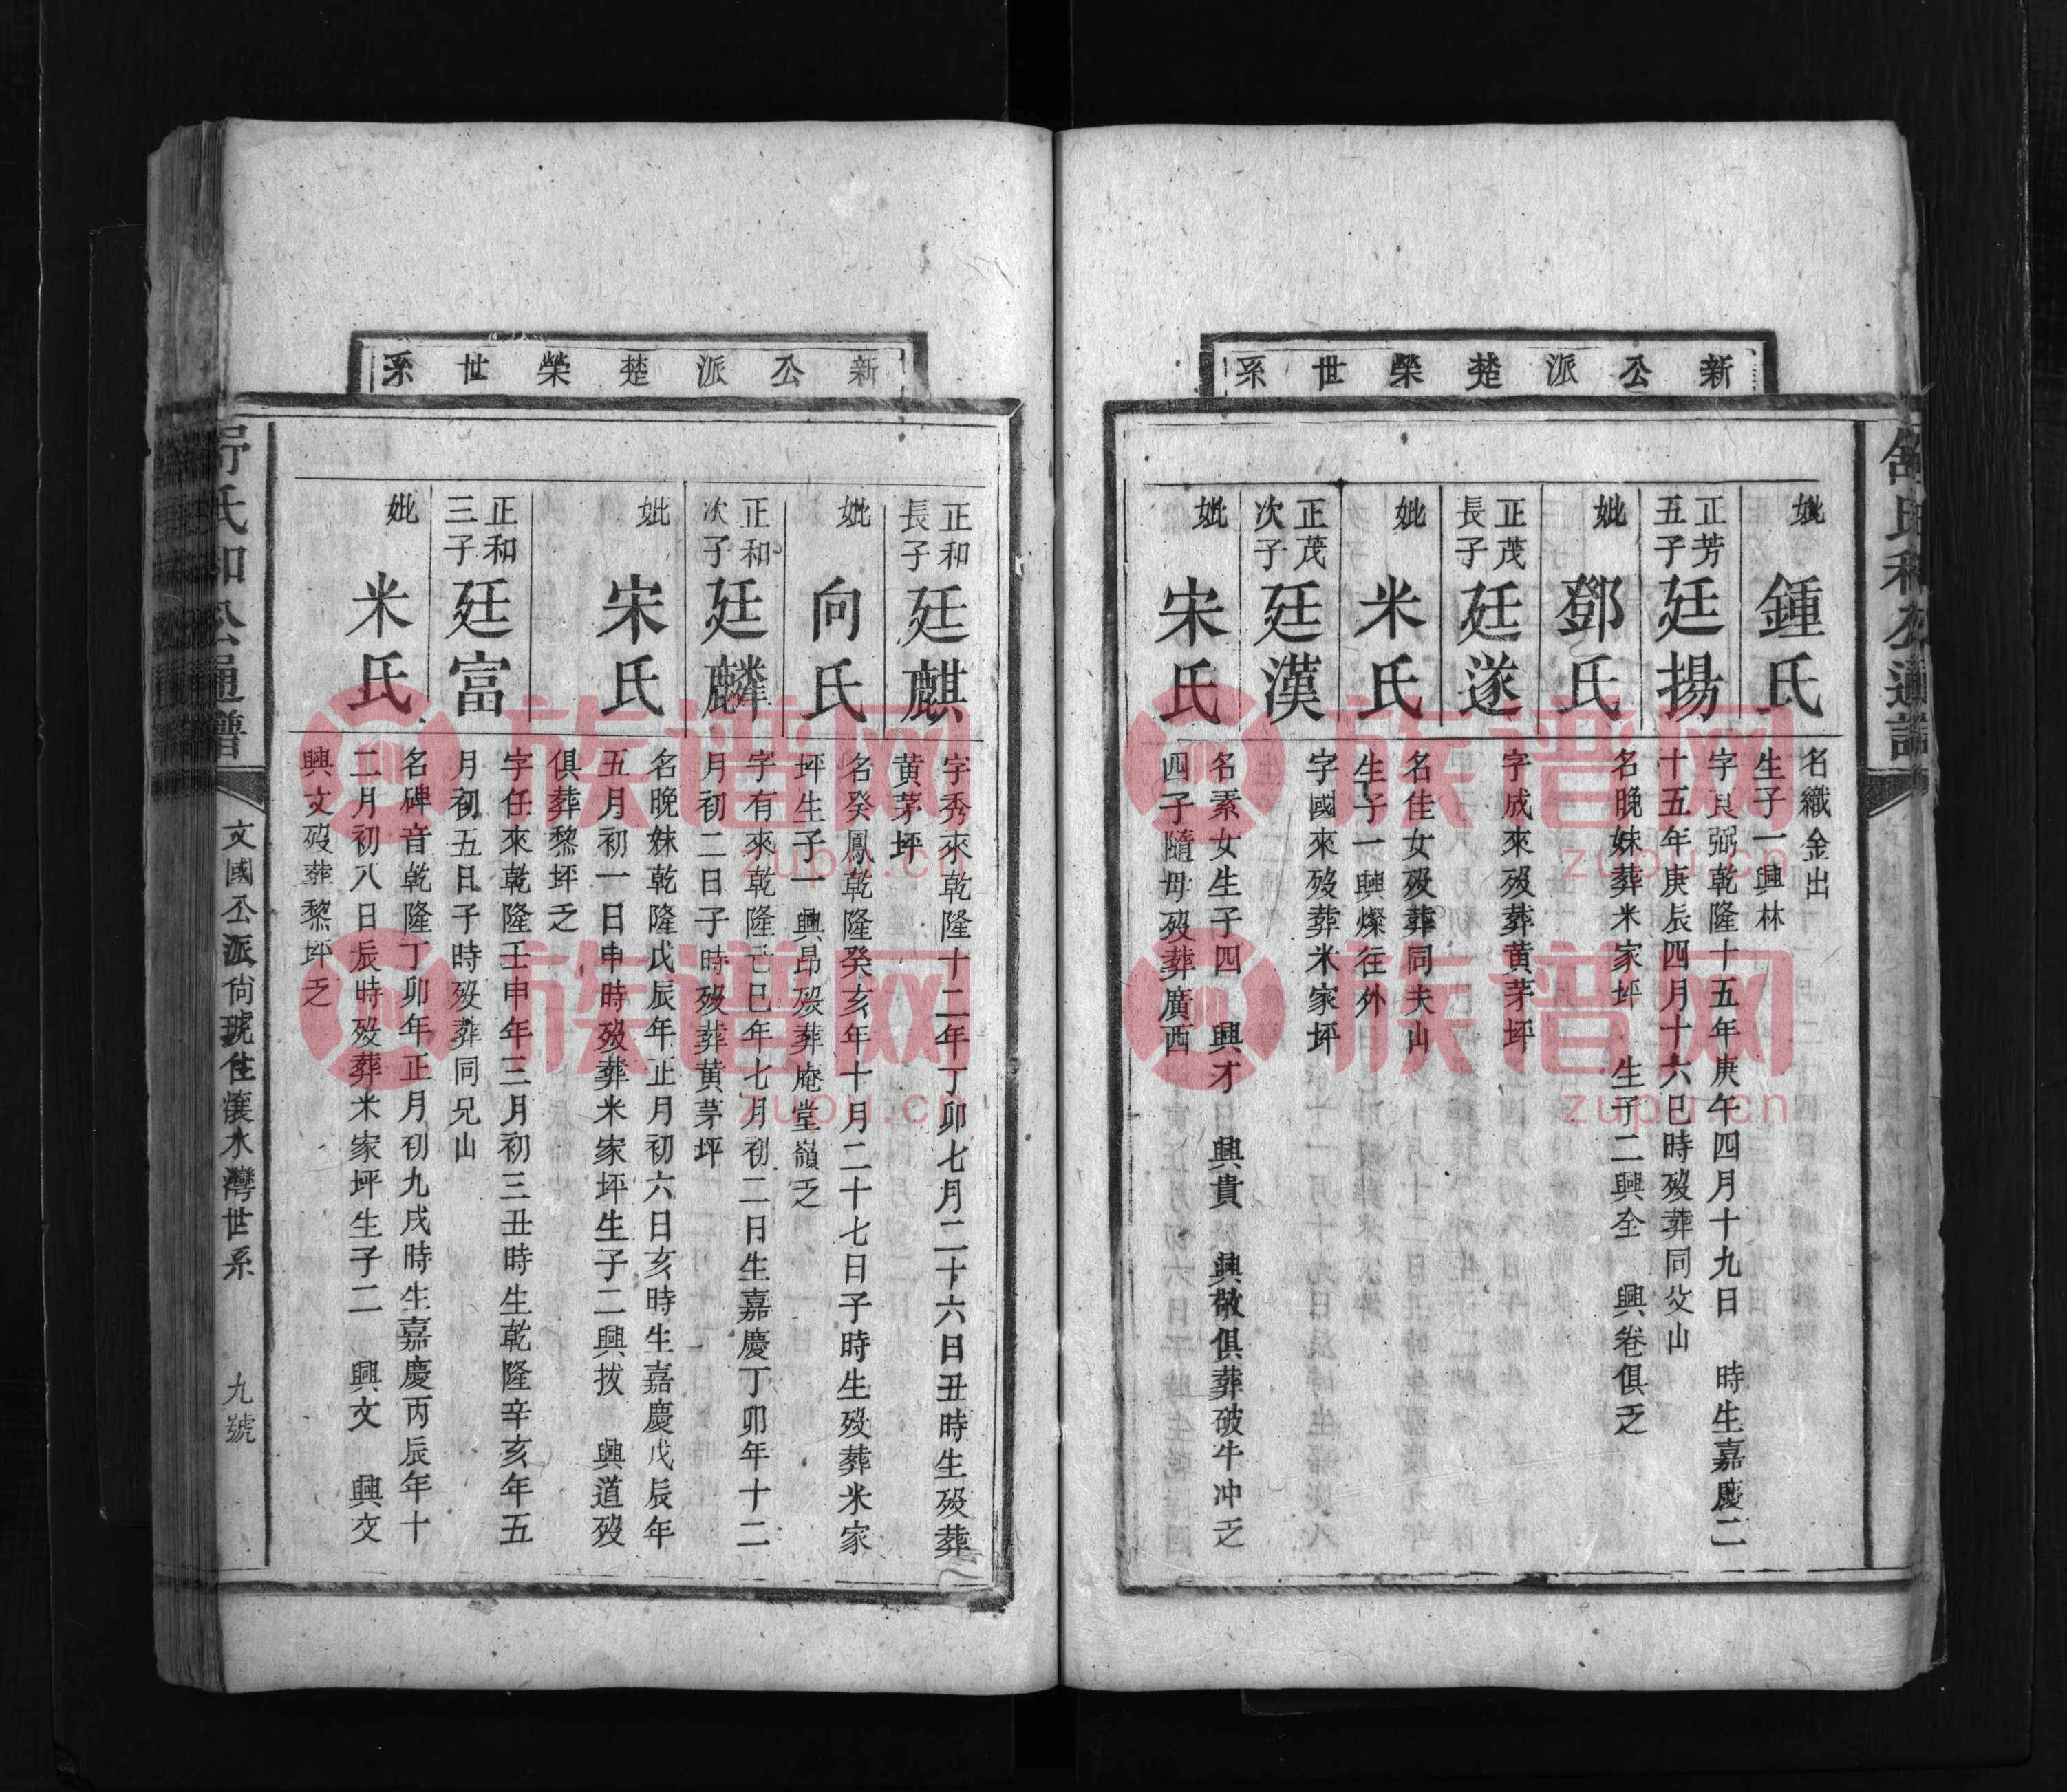 新公派楚榮世系
舒氏和公通譜
妣
鍾氏
名織金出
生子一興林
正芳
五子
廷揚
字良弼乾隆十五年庚午四月十九日　時生嘉慶二
十五年庚辰四月十六巳時歿葬同父山
妣
鄧氏
名晚妹葬米家坪　生子二興全　興卷俱乏
正茂
長子
廷遂
字成來歿葬黃茅坪
妣
米氏
名佳女歿葬同夫山
生子一興燦往外
正茂
次子
廷漢
字國來歿葬米家坪
妣
宋氏
名素女生子四　興才　興貴　興敬俱葬破牛冲乏
四子隨母歿葬廣西
新公派楚榮世系
正和
長子
廷麒
字秀來乾隆十二年丁卯七月二十六日丑時生歿葬
黃茅坪
妣
向氏
名癸鳳乾隆癸亥年十月二十七日子時生歿葬米家
坪生子一興昂歿葬庵堂嶺乏
正和
次子
廷麟
字有來乾隆己巳年七月初二日生嘉慶丁卯年十二
月初二日子時歿葬黃茅坪
妣
宋氏
名晚妹乾隆戊辰年正月初六日亥時生嘉慶戊辰年
五月初一日申時歿葬米家坪生子二興拔　興道歿
俱葬黎坪乏
正和
三子
廷富
字任來乾隆壬申年三月初三丑時生乾隆辛亥年五
月初五日子時歿葬同兄山
妣
米氏
名碑音乾隆丁卯年正月初九戌時生嘉慶丙辰年十
二月初八日辰時歿葬米家坪生子二　興文　興交
興文歿葬黎坪乏
舒氏和公通譜
文國公派尙琥住濮水灣世系　九號
族谱网
zupu.cn
族谱网
zupu.cn
族谱网
zupu.cn
族谱网
zupu.cn